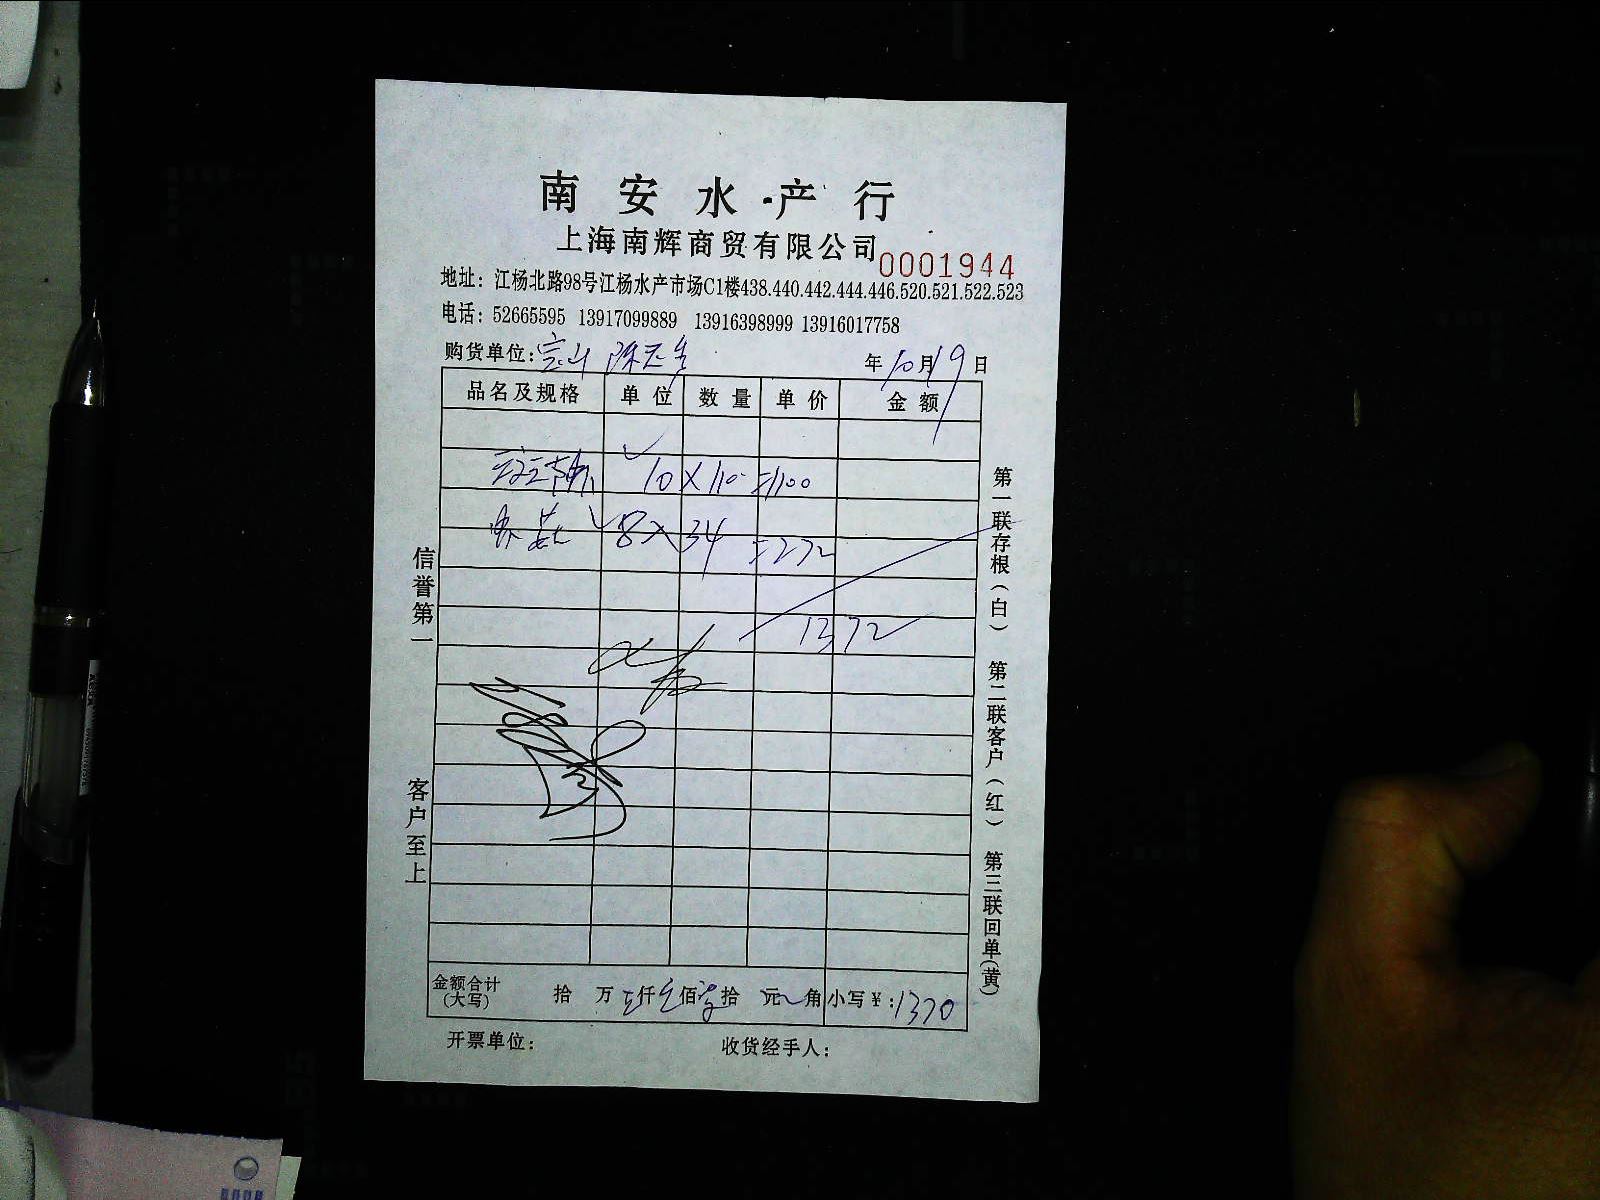 南安水产行
上海南辉商贸有限公司 0001944
地址：江杨北路98号江杨水产市场C1楼438.440.442.444.446.520.521.522.523
电话：52665595 13917099889 13916398999 13916017758
购货单位：宝山 陈 年10月19日
品名及规格 单位 数量 单价 金额
10×110=1100
8×34=272
1372
金额合计(大写) 拾 万 仟 佰 拾 元 角 小写￥：1370
开票单位： 收货经手人：
信誉第一 客户至上
第一联存根（白） 第二联客户（红） 第三联回单(黄)